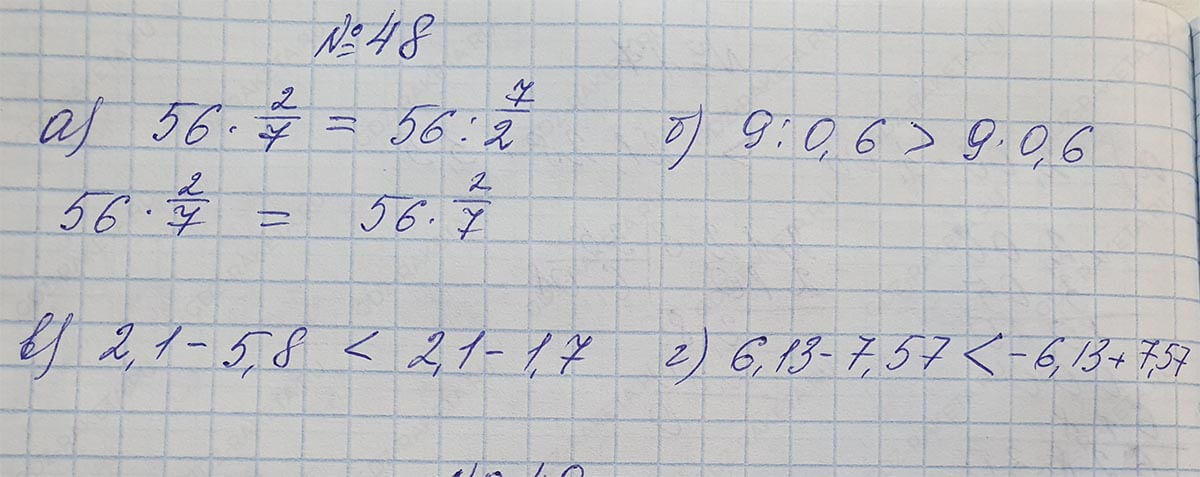 №48
а) 56 · 2/7 = 56 : 7/2 б) 9 : 0,6 > 9 · 0,6
56 · 2/7 = 56 · 2/7
в) 2,1 - 5,8 < 2,1 - 1,7 г) 6,13 - 7,57 < -6,13 + 7,57